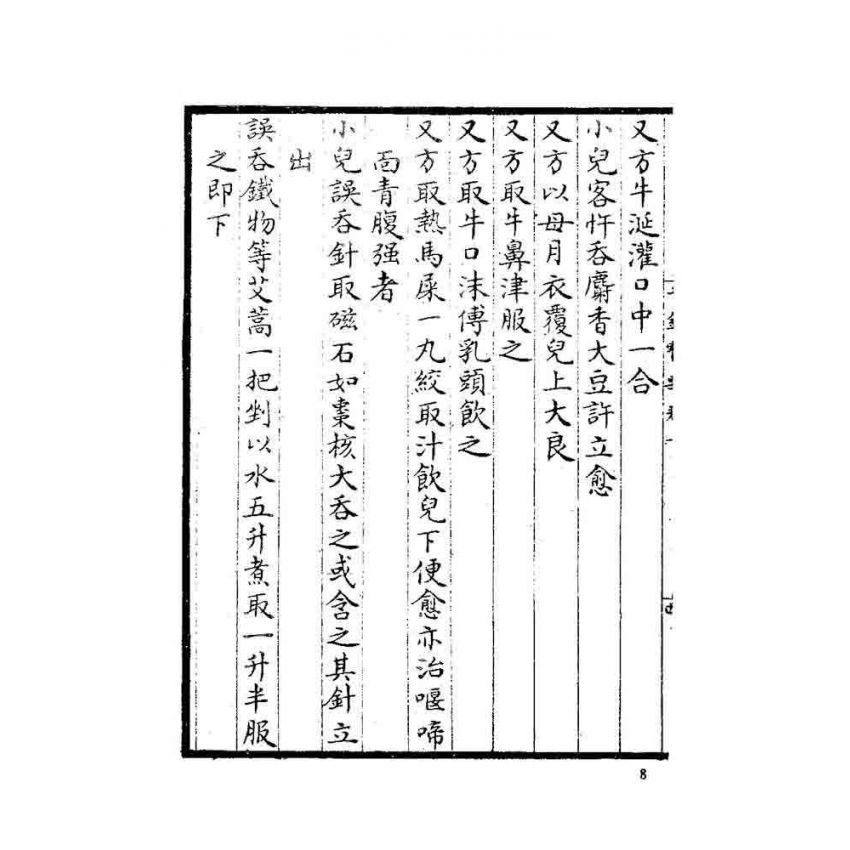 又方牛涎灌口中一合
小兒客忤吞麝香大豆許立愈
又方以毋月衣覆兒上大良
又方取牛鼻津服之
又方取牛口沫傅乳頭飲之
又方取熱馬屎一丸絞取汁飲兒下便愈亦治喔啼
面青腹强者
小兒誤吞針取磁石如棗核大吞之或含之其針立
出
誤吞鐵物等艾蒿一把剉以水五升煮取一升半服
之即下
8